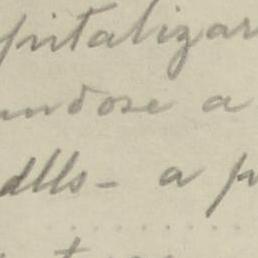 pitalizar
undose a
dlls- a p